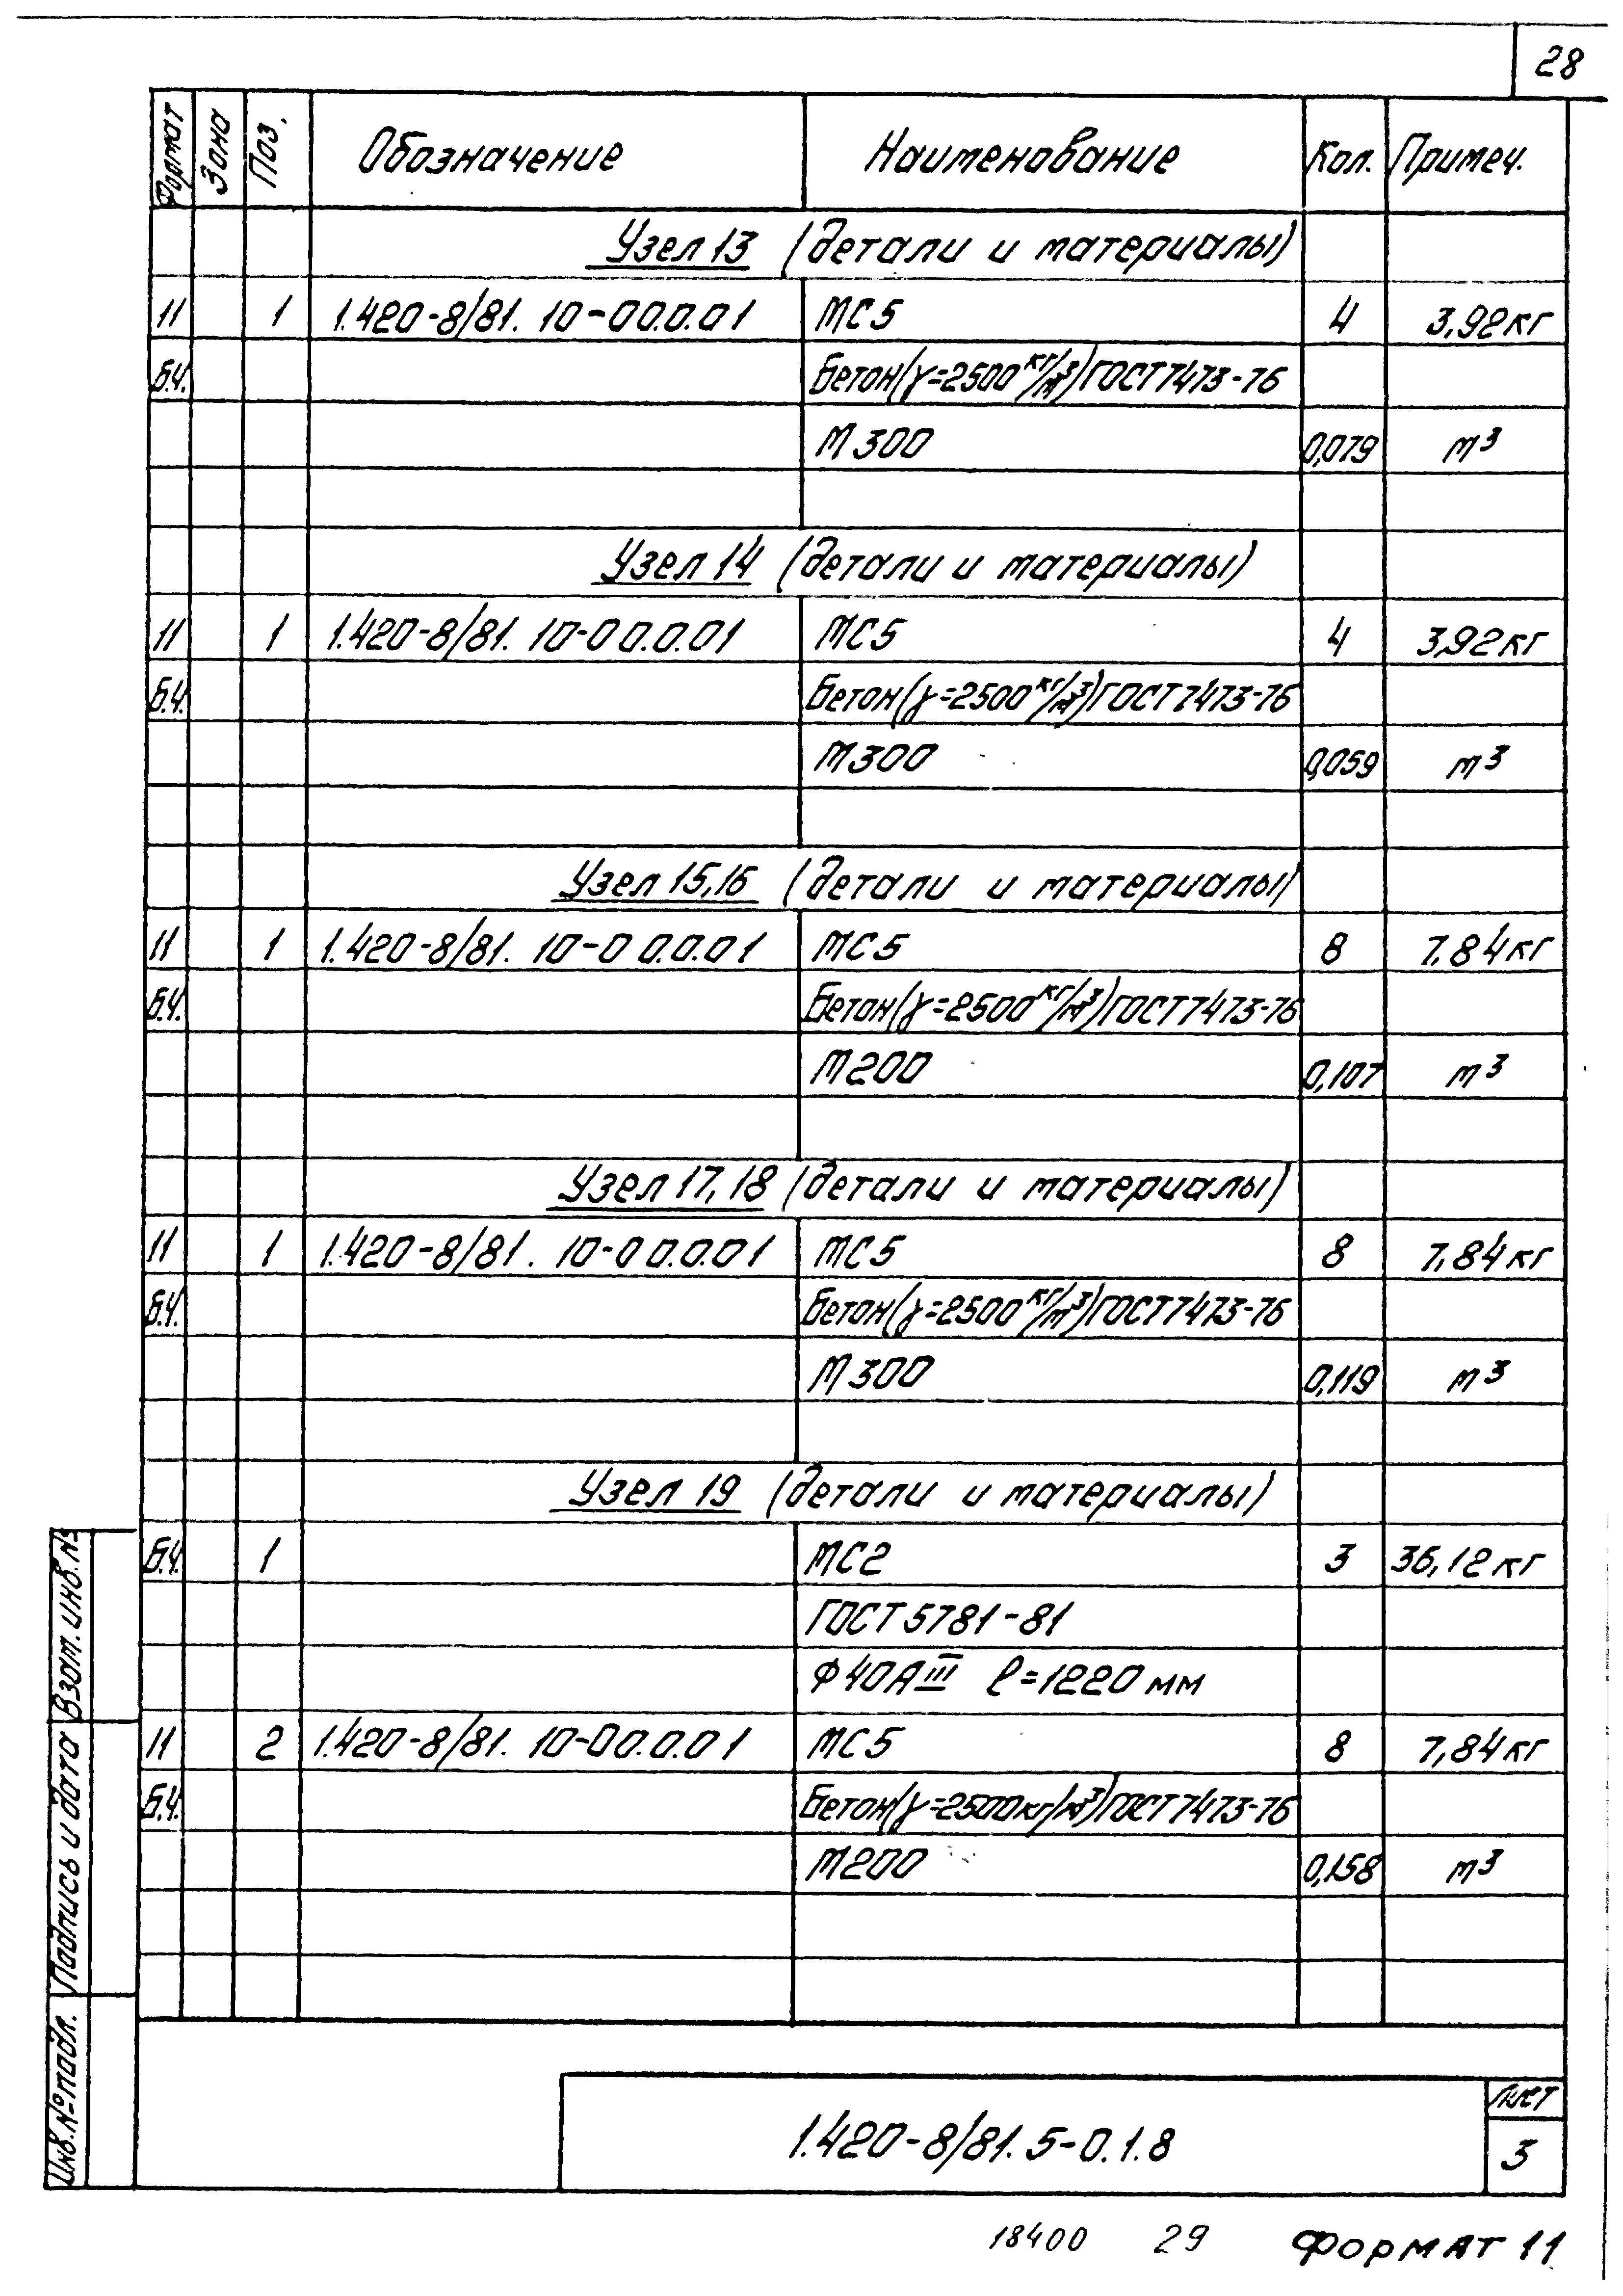 28
Формат Зона Поз. Обозначение Наименование Кол. Примеч.
Узел 13 (детали и материалы)
11 1 1.420-8/81. 10-00.0.01 МС5 4 3,92кг
Б.Ч. Бетон(γ=2500кг/м³)ГОСТ7473-76
М300 0,079 м³
Узел 14 (детали и материалы)
11 1 1.420-8/81. 10-00.0.01 МС5 4 3,92кг
Б.Ч. Бетон(γ=2500кг/м³)ГОСТ7473-76
М300 0,059 м³
Узел 15,16 (детали и материалы)
11 1 1.420-8/81. 10-00.0.01 МС5 8 7,84кг
Б.Ч. Бетон(γ=2500кг/м³)ГОСТ7473-76
М200 0,107 м³
Узел 17,18 (детали и материалы)
11 1 1.420-8/81. 10-00.0.01 МС5 8 7,84кг
Б.Ч. Бетон(γ=2500кг/м³)ГОСТ7473-76
М300 0,119 м³
Узел 19 (детали и материалы)
Б.Ч. 1 МС2 3 36,12кг
ГОСТ 5781-81
Ф40АIII ℓ=1220мм
11 2 1.420-8/81. 10-00.0.01 МС5 8 7,84кг
Б.Ч. Бетон(γ=2500кг/м³)ГОСТ7473-76
М200 0,158 м³
Взам. инв. №
Подпись и дата
Инв.№подл.
1.420-8/81.5-0.1.8
Лист
3
18400 29 Формат 11